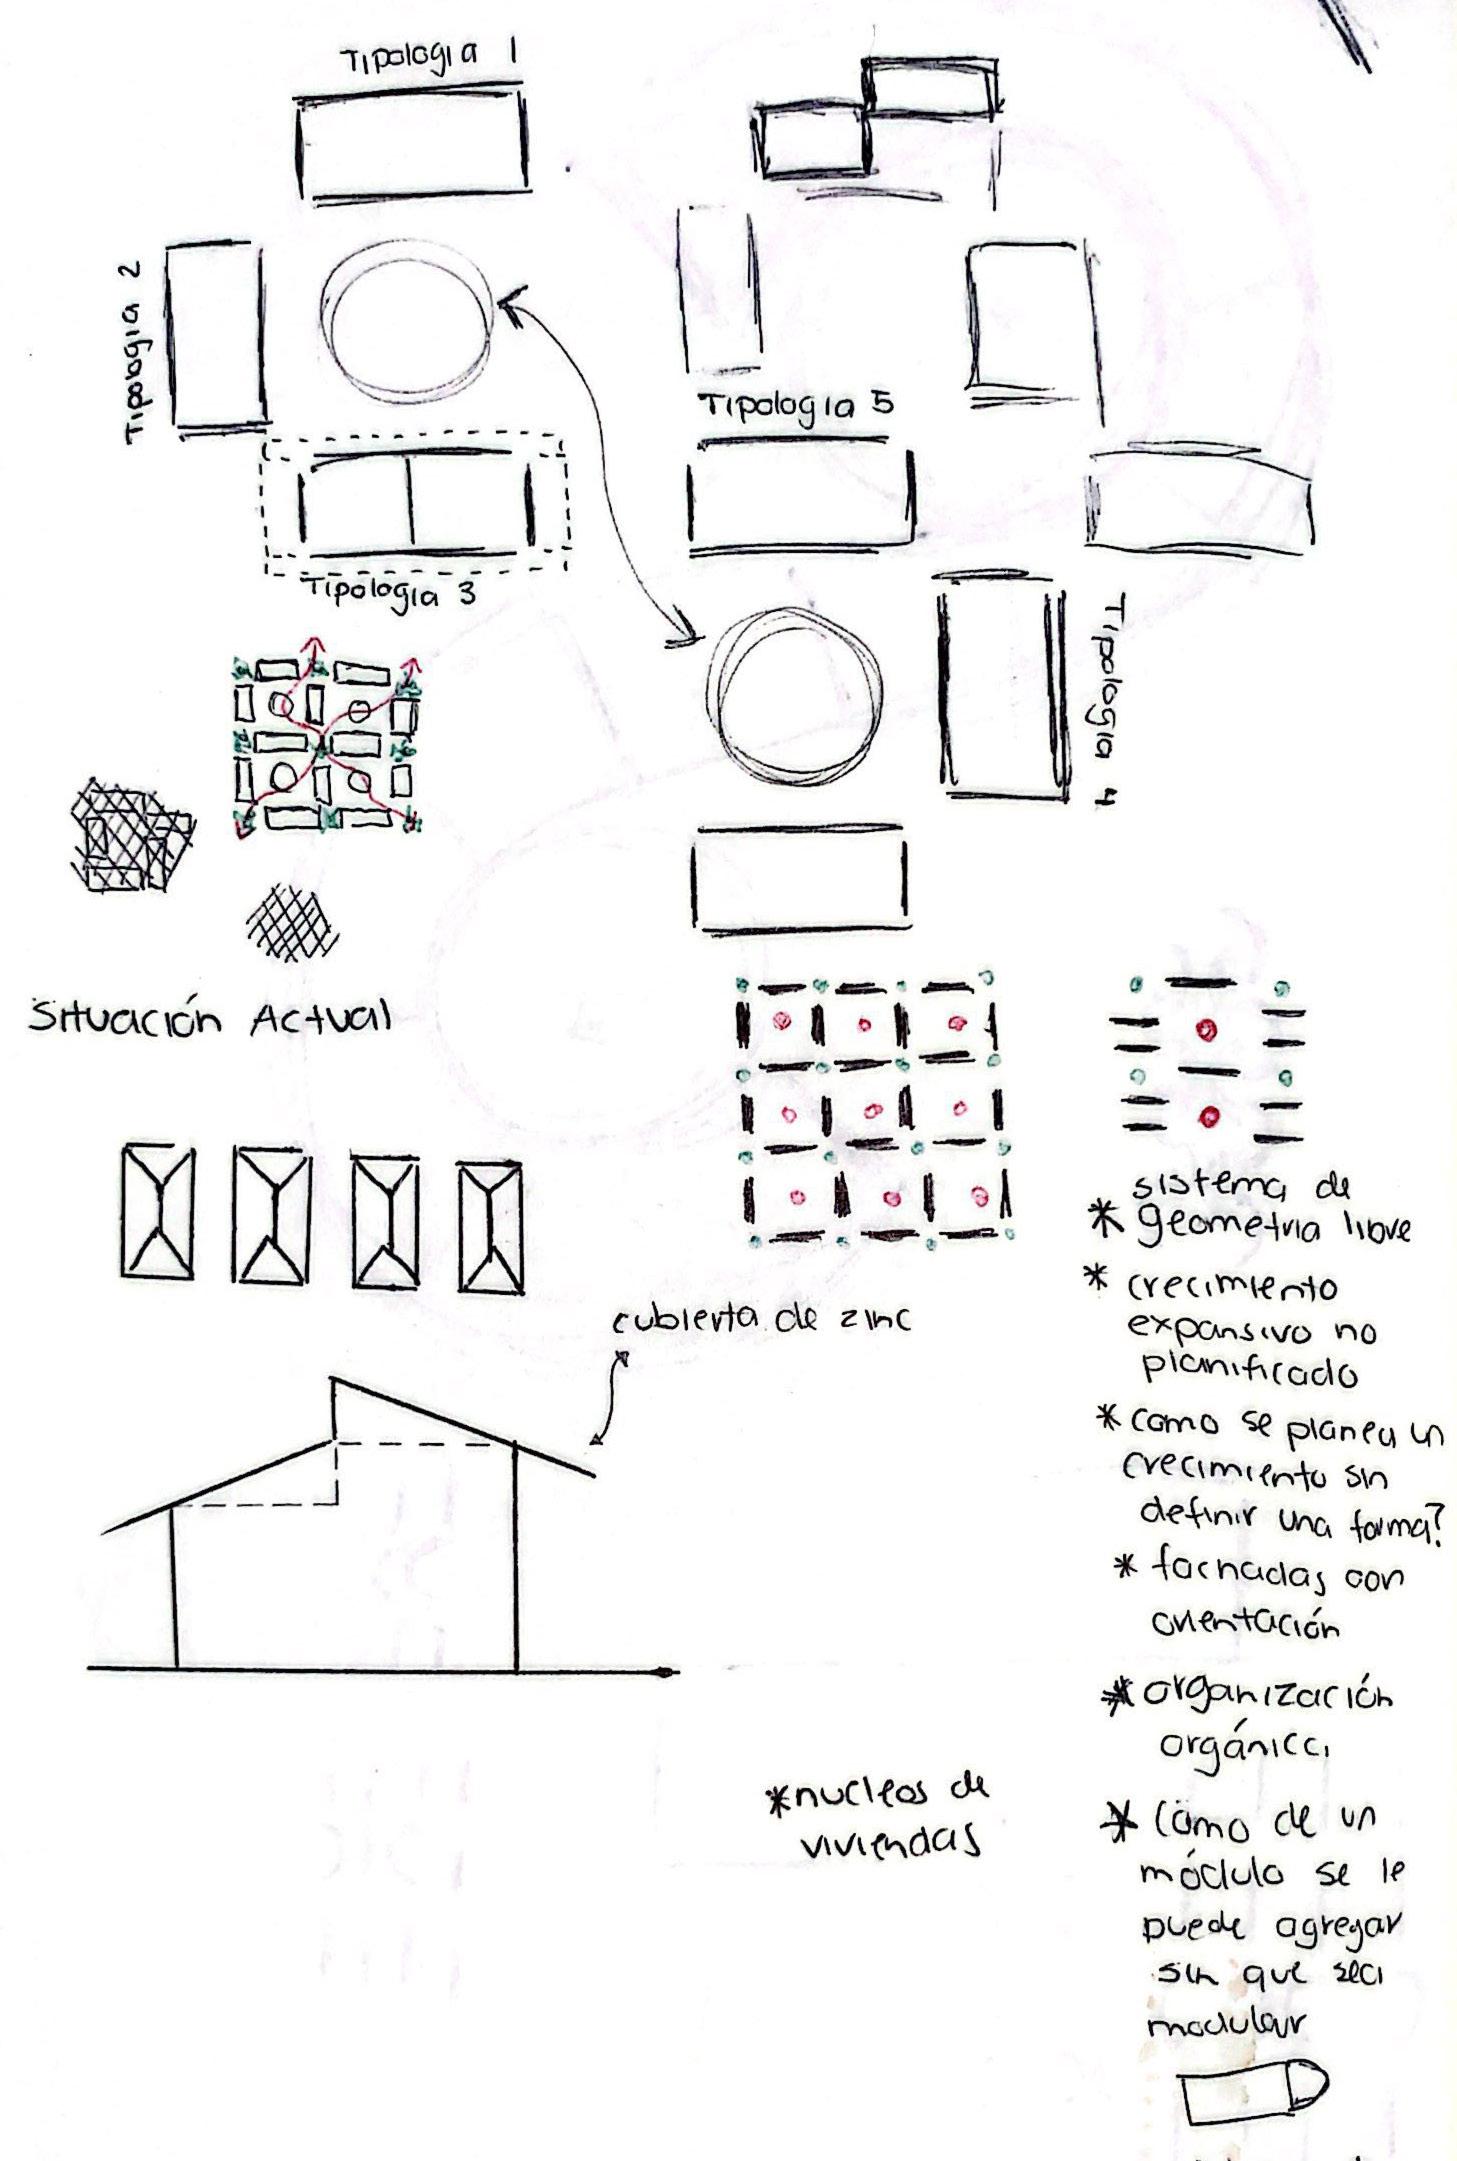 Tipologia 1
Tipologia 2
Tipologia 5
Tipologia 3
Tipologia 4
Situación Actual
cubierta de zinc
sistema de
* geometria libre
* crecimiento
expansivo no
planificado
* como se planea un
crecimiento sin
definir una forma?
* fachadas con
orientación
* organización
orgánica
* nucleos de
viviendas
* como de un
módulo se le
puede agregar
sin que sea
modular